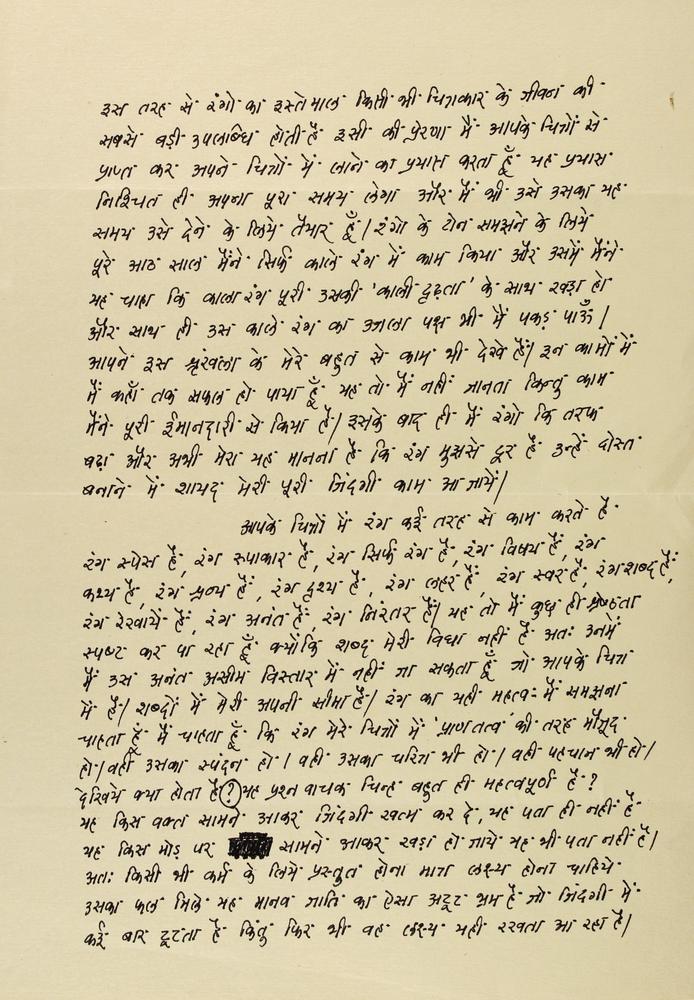 इस तरह से रंगो का इस्तेमाल किसी भी चित्रकार के जीवन की
सबसे बड़ी उपलब्धि होती है इसी की प्रेरणा मैं आपके चित्रों से
प्राप्त कर अपने चित्रों में लाने का प्रयास करता हूँ यह प्रयास
निश्चित ही अपना पूरा समय लेगा और मैं भी उसे उसका यह
समय उसे देने के लिये तैयार हूँ। रंगो के टोन समझने के लिये
पूरे आठ साल मैंने सिर्फ काले रंग में काम किया और उसमें मैंने
यह चाहा कि काला रंग पूरी उसकी 'काली दृढ़ता' के साथ खड़ा हो
और साथ ही उस काले रंग का उजला पक्ष भी मैं पकड़ पाऊँ।
आपने इस श्रृंखला के मेरे बहुत से काम भी देखे हैं। इन कामों में
मैं कहाँ तक सफल हो पाया हूँ यह तो मैं नहीं जानता किन्तु काम
मैंने पूरी ईमानदारी से किया है। इसके बाद ही मैं रंगो कि तरफ
बढ़ा और अभी मेरा यह मानना है कि रंग मुझसे दूर है उन्हें दोस्त
बनाने में शायद मेरी पूरी जिंदगी काम आ जाये।
आपके चित्रों में रंग कई तरह से काम करते है
रंग स्पेस है, रंग रूपाकार है, रंग सिर्फ रंग है, रंग विषय है, रंग
कथ्य है, रंग श्रव्य है, रंग दृश्य है, रंग लहर है, रंग स्वर है, रंग शब्द है,
रंग रेखायें है, रंग अनंत है, रंग निरंतर है। यह तो मैं कुछ ही श्रेष्ठता
स्पष्ट कर पा रहा हूँ क्योंकि शब्द मेरी विधा नहीं है अतः उनमें
मैं उस अनंत असीम विस्तार में नहीं जा सकता हूँ जो आपके चित्र
में है। शब्दों में मेरी अपनी सीमा है। रंग का यही महत्व मैं समझना
चाहता हूँ मैं चाहता हूँ कि रंग मेरे चित्रों में 'प्राणतत्व' की तरह मौजूद
हो। वहीं उसका स्पंदन हो। वही उसका चरित्र भी हो। वही पहचान भी हो।
देखिये क्या होता है? यह प्रश्न वाचक चिन्ह बहुत ही महत्वपूर्ण है?
यह किस वक्त सामने आकर जिंदगी खत्म कर दे, यह पता ही नहीं है
यह किस मोड़ पर सामने आकर खड़ा हो जाये यह भी पता नहीं है।
अतः किसी भी कर्म के लिये प्रस्तुत होना मात्र लक्ष्य होना चाहिये
उसका फल मिले यह मानव जाति का ऐसा अटूट भ्रम है जो जिंदगी में
कई बार टूटता है किंतु फिर भी वह लक्ष्य यही रखता आ रहा है।